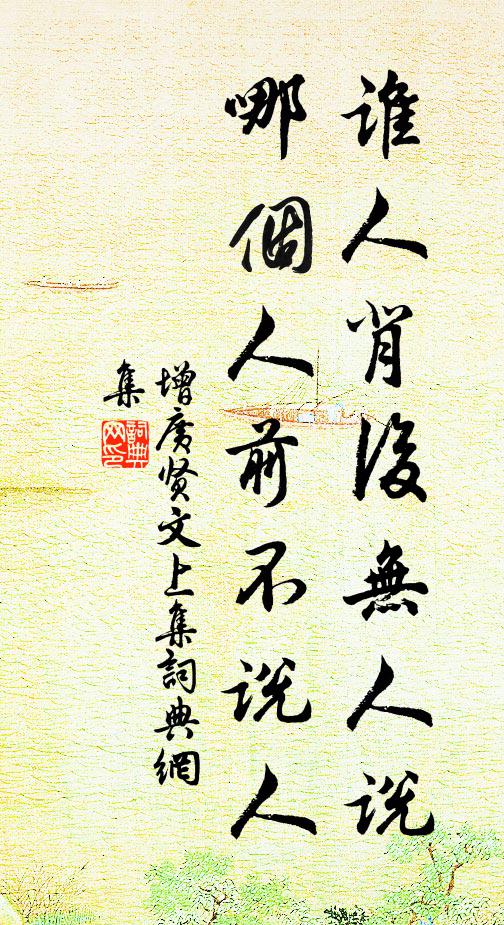 谁人背後無人说
哪個人前不说人
增廣贤文上集詞典網
集
詞典網印